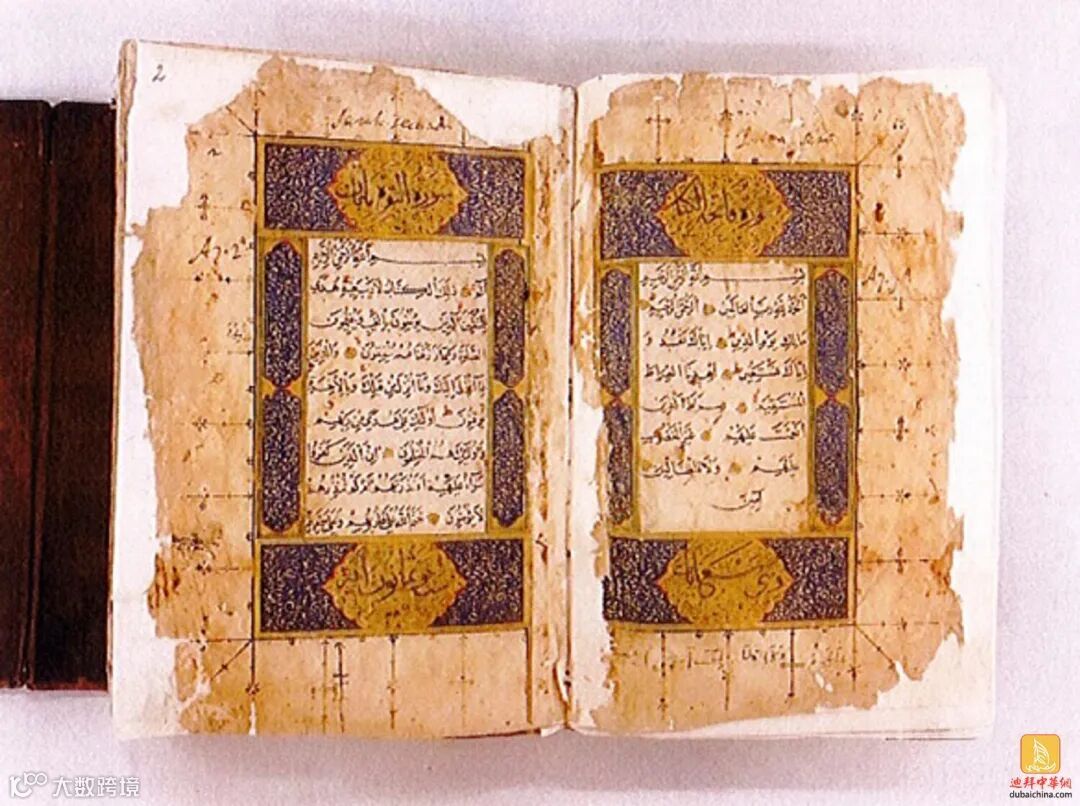 سورة فاتحة الكتاب
بسم الله الرحمن الرحيم
الحمد لله رب العالمين الرحمن الرحيم
مالك يوم الدين اياك نعبد و
اياك نستعين اهدنا الصراط
المستقيم صراط الذين
انعمت عليهم غير المغضوب
عليهم ولا الضالين
امين
سبع ايات
2
سورة البقرة مايتان
بسم الله الرحمن الرحيم
الم ذلك الكتاب لا ريب فيه هدى
للمتقين الذين يؤمنون بالغيب ويقيمون
الصلوة ومما رزقناهم ينفقون والذين
بما انزل اليك وما انزل من قبلك وبالاخرة
هم يوقنون اولئك على هدى من ربهم
واولئك هم المفلحون ان الذين كفروا
سواء عليهم ءانذرتهم ام لم تنذرهم
لا يؤمنون ختم الله على قلوبهم وعلى سمعهم
وثمانون اية
大数跨境
迪拜中華網
dubaichina.com